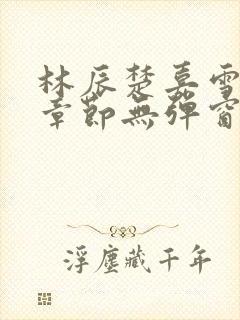 林辰楚嘉雪
章節無彈窗
浮塵藏千年